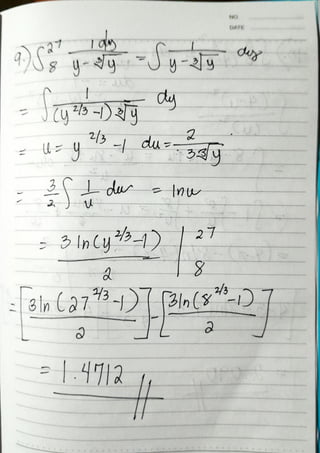 NO
DATE
9.) ∫₈²⁷ 1 dy / (y - ∛y) = ∫ 1 / (y - ∛y) dy
= ∫ 1 / ((y^2/3 - 1) ∛y) dy
= u = y^2/3 - 1 du = 2 / (3∛y)
= 3/2 ∫ 1/u du = ln u
= 3 ln (y^2/3 - 1) / 2 | 27 8
= [3 ln (27^2/3 - 1) / 2] - [3 ln (8^2/3 - 1) / 2]
= 1.4712 //